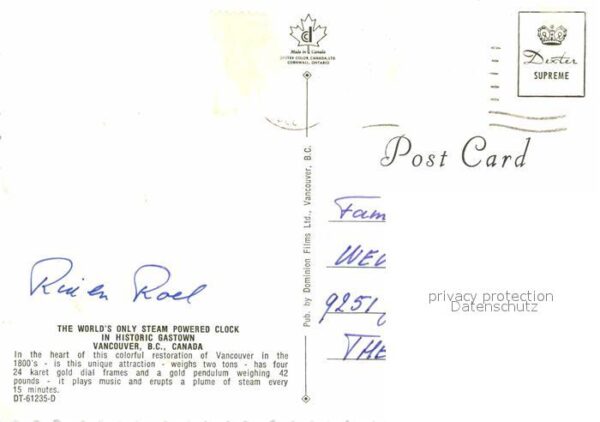 Made in Canada
DEXTER COLOR CANADA LTD.
CORNWALL, ONTARIO
Dexter
SUPREME
Post Card
Pub. by Dominion Films Ltd., Vancouver, B.C.
Fam
WE
9251
THE
privacy protection
Datenschutz
Roel
THE WORLD'S ONLY STEAM POWERED CLOCK
IN HISTORIC GASTOWN
VANCOUVER, B.C., CANADA
In the heart of this colorful restoration of Vancouver in the
1800's - is this unique attraction - weighs two tons - has four
24 karet gold dial frames and a gold pendulum weighing 42
pounds - it plays music and erupts a plume of steam every
15 minutes.
DT-61235-D